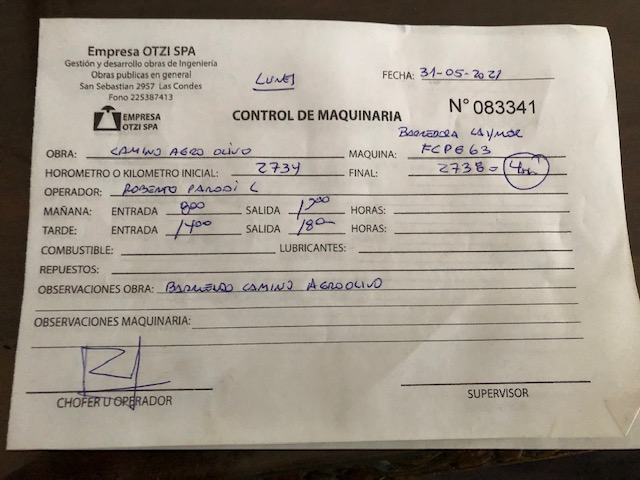 Empresa OTZI SPA
Gestión y desarrollo obras de Ingeniería
Obras publicas en general
San Sebastian 2957 Las Condes
Fono 225387413
LUNES
FECHA: 31-05-2021
EMPRESA
OTZI SPA
CONTROL DE MAQUINARIA
N° 083341
BARREDORA LAYMOR
OBRA: CAMINO AGRO OLIVO MAQUINA: FCPB63
HOROMETRO O KILOMETRO INICIAL: 2734 FINAL: 2738 = 4
OPERADOR: ROBERTO PARODI C
MAÑANA: ENTRADA 800 SALIDA 1300 HORAS:
TARDE: ENTRADA 1400 SALIDA 1800 HORAS:
COMBUSTIBLE: LUBRICANTES:
REPUESTOS:
OBSERVACIONES OBRA: BARRIENDO CAMINO AGROOLIVO
OBSERVACIONES MAQUINARIA:
CHOFER U OPERADOR
SUPERVISOR